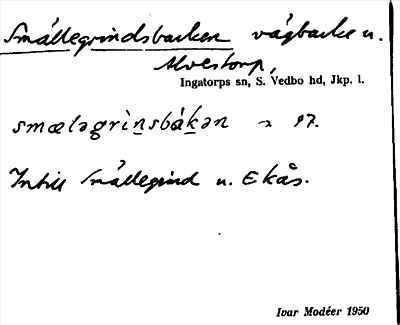 Smällegrindsbacken vägbacke n.
Alvestorp,
Ingatorps sn, S. Vedbo hd, Jkp. l.
smæləgrìnsbákən
Intill Smällegrind n. Ekås.
Ivar Modéer 1950